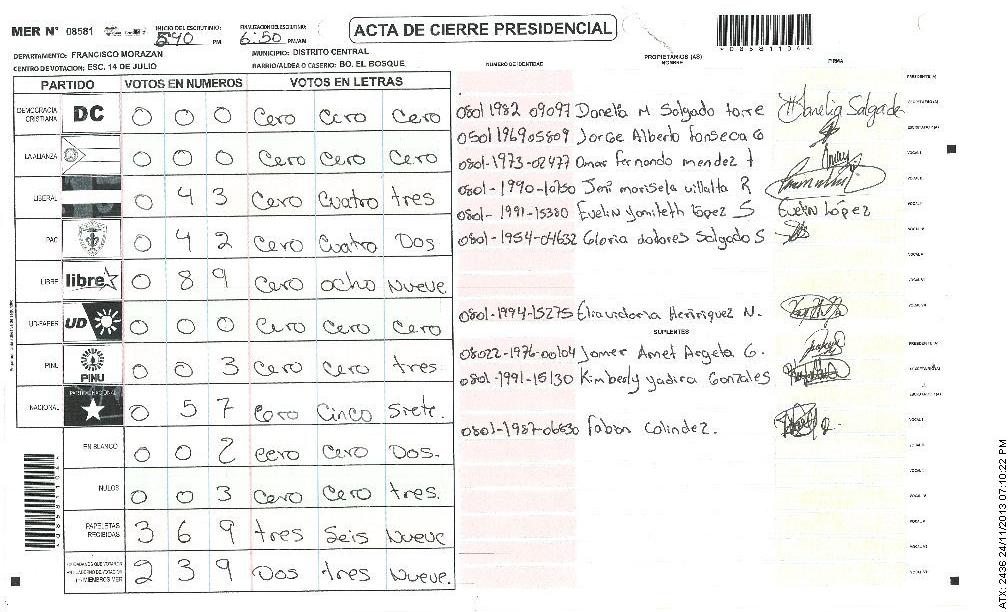 MER Nº 08581
INICIO DEL ESCRUTINIO: 5:40 PM
FINALIZACION DEL ESCRUTINIO: 6:50 PM/AM
ACTA DE CIERRE PRESIDENCIAL
DEPARTAMENTO: FRANCISCO MORAZAN
MUNICIPIO: DISTRITO CENTRAL
CENTRO DE VOTACION: ESC. 14 DE JULIO
BARRIO/ALDEA O CASERIO: BO. EL BOSQUE
PARTIDO VOTOS EN NUMEROS VOTOS EN LETRAS
DEMOCRACIA CRISTIANA DC 0 0 0 Cero Cero Cero
LA ALIANZA 0 0 0 Cero Cero Cero
LIBERAL 0 4 3 Cero Cuatro tres
PAC 0 4 2 Cero Cuatro Dos
LIBRE libre 0 8 9 Cero ocho Nueve
UD-FAPER UD 0 0 0 Cero Cero Cero
PINU PINU 0 0 3 Cero Cero tres
NACIONAL PARTIDO NACIONAL 0 5 7 Cero Cinco Siete.
EN BLANCO 0 0 2 Cero Cero Dos.
NULOS 0 0 3 Cero Cero tres.
PAPELETAS RECIBIDAS 3 6 9 tres Seis Nueve
2 3 9 Dos tres Nueve.
NUMERO DE IDENTIDAD PROPIETARIOS (AS) NOMBRE FIRMA
0801 1982 09097 Donelia M Salgado torre Danelia Salgado
0501 1969 05809 Jorge Alberto Fonseca G
0801-1973-02477 Omar Fernando mendez t
0801-1990-10750 Jeni marisela villalta R
0801-1991-15380 Evelin yamileth López S Evelin López
0801-1954-04632 Gloria dolores Salgado S
0801-1994-15275 Henriquez N.
SUPLENTES
08022-1976-00104 Jamer Amet Argeta G.
0801-1991-15130 Kimberly yadira Gonzales
0801-1987-06530 Fabon Galindez.
ATX: 2436 24/11/2013 07:10:22 PM